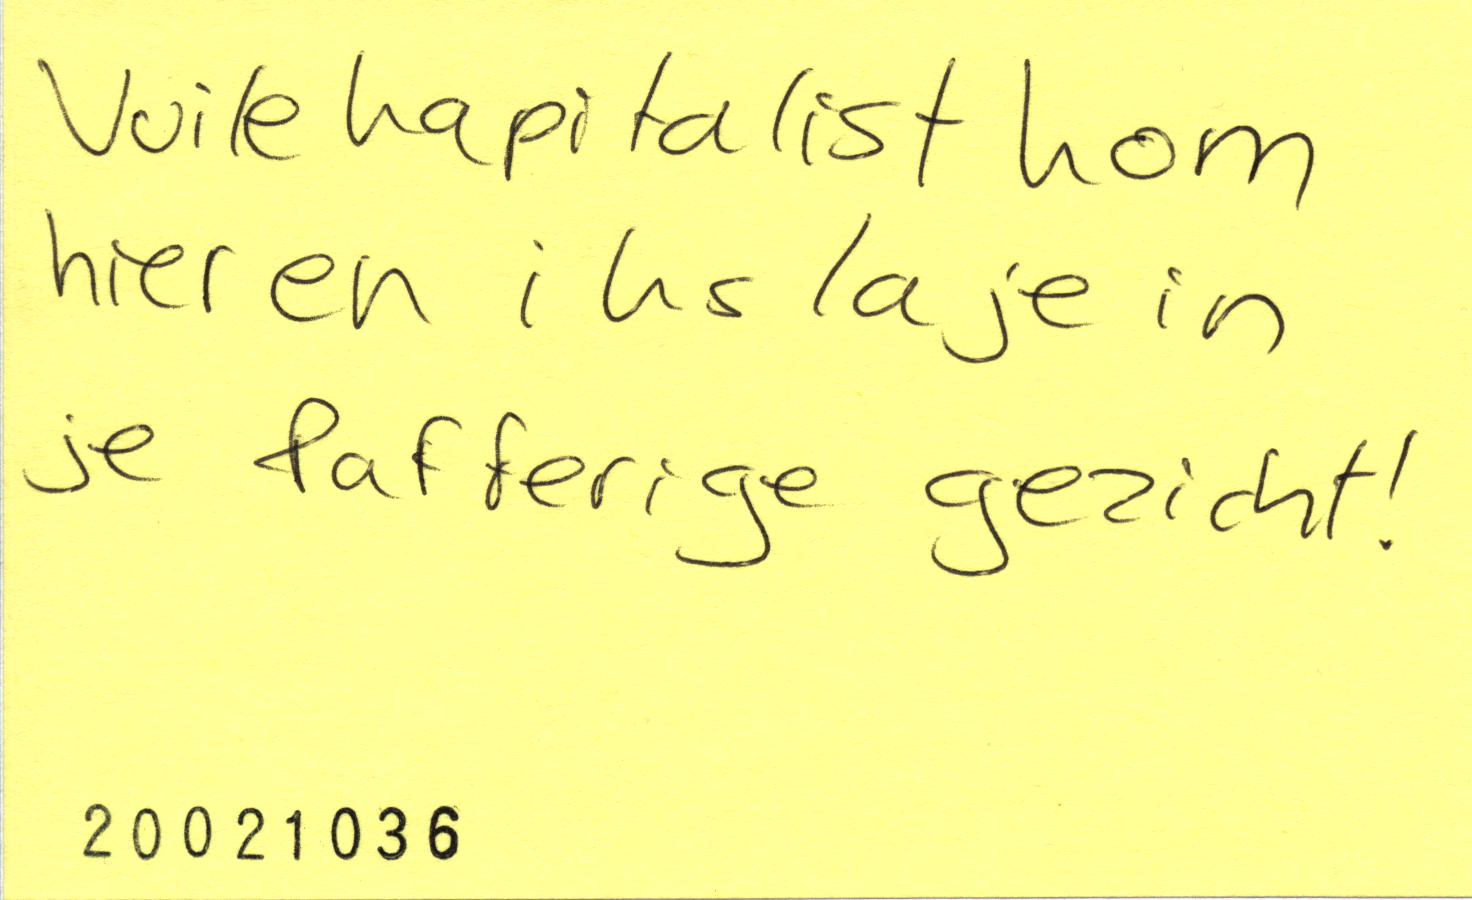 Vuile kapitalist kom
hier en ik sla je in
je pafferige gezicht!
20021036